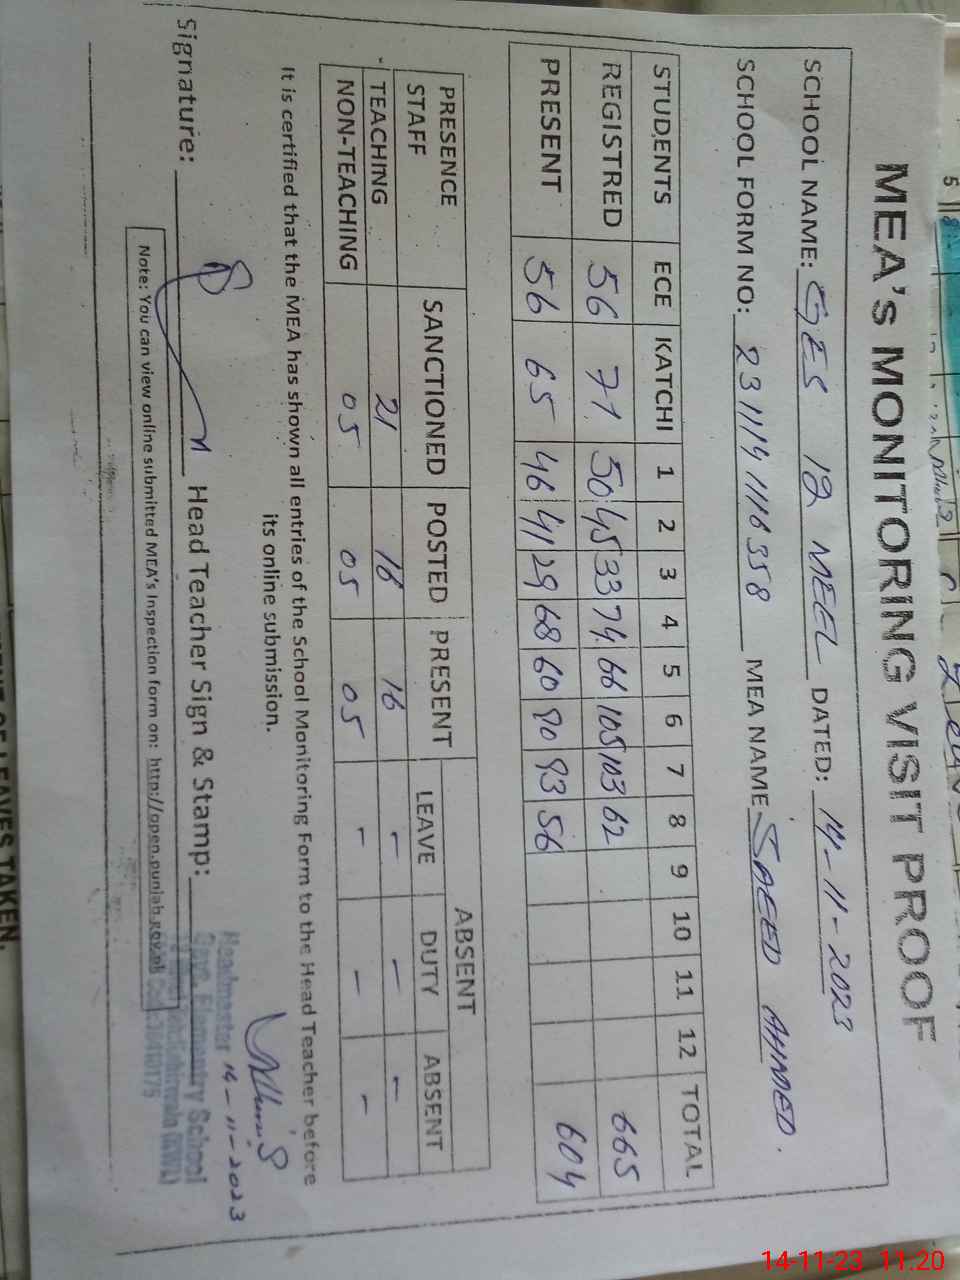 MEA's MONITORING VISIT PROOF
SCHOOL NAME: GES 12 MEEL DATED: 14-11-2023
SCHOOL FORM NO: 2311141116358 MEA NAME SAEED AHMED.
STUDENTS ECE KATCHI 1 2 3 4 5 6 7 8 9 10 11 12 TOTAL
REGISTRED 56 71 50 45 33 74 66 105 103 62 665
PRESENT 56 65 46 41 29 68 60 90 93 56 604
PRESENCE STAFF SANCTIONED POSTED PRESENT ABSENT
LEAVE DUTY ABSENT
TEACHING 21 16 16 - - -
NON-TEACHING 05 05 05 - - -
It is certified that the MEA has shown all entries of the School Monitoring Form to the Head Teacher before
its online submission.
Signature: Head Teacher Sign & Stamp:
14-11-2023
Headmaster
Govt. Elementry School
Note: You can view online submitted MEA's Inspection form on: http://open.punjab.gov.pk
LEAVES TAKEN.
14-11-23 11.20